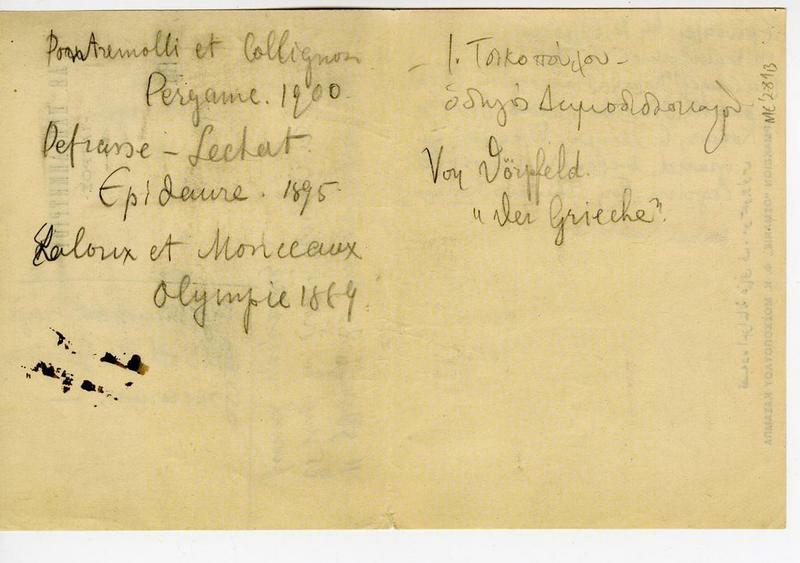 Pontremolli et Collignon
Pergame. 1900.
Defrasse - Lechat.
Epidaure. 1895.
Laloux et Monceaux
Olympie 1889.
- Ι. Τσικοπούλου -
ὁδηγὸς Δημοδιδασκάλου
Von Dörpfeld.
"Der Grieche".
ΜΕ΄281β